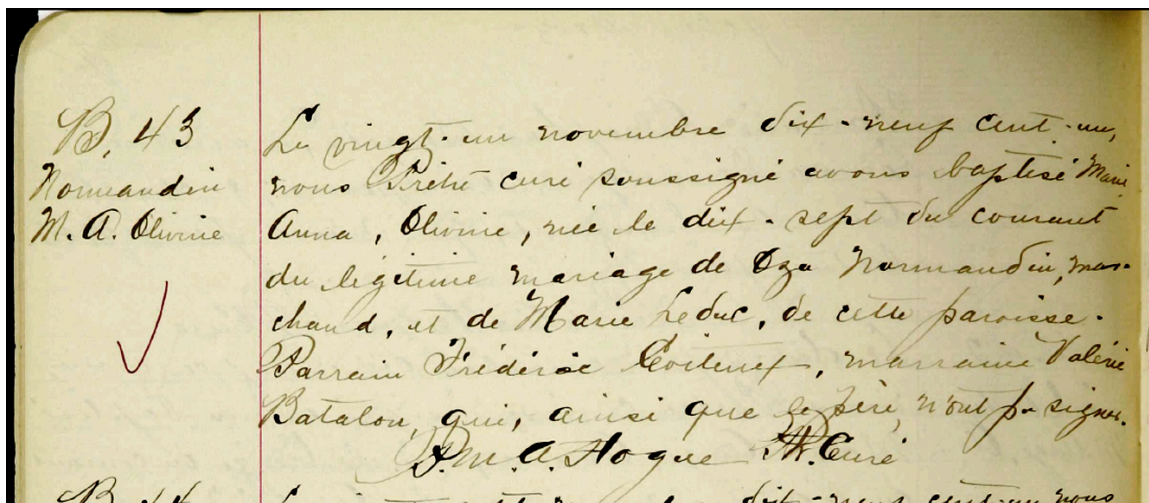 B. 43
Normandin
M. A. Olivine
Le vingt-un novembre dix-neuf cent-un,
nous Prêtre curé soussigné avons baptisé Marie
Anna, Olivine, née le dix-sept du courant
du légitime mariage de Oza Normandin, mar-
chand, et de Marie Leduc, de cette paroisse.
Parrain Frédéric, marraine Valérie
Batalon, qui, ainsi que le père, n'ont pu signer.
P. M. A. Hogue Ptr. Curé
B. 44